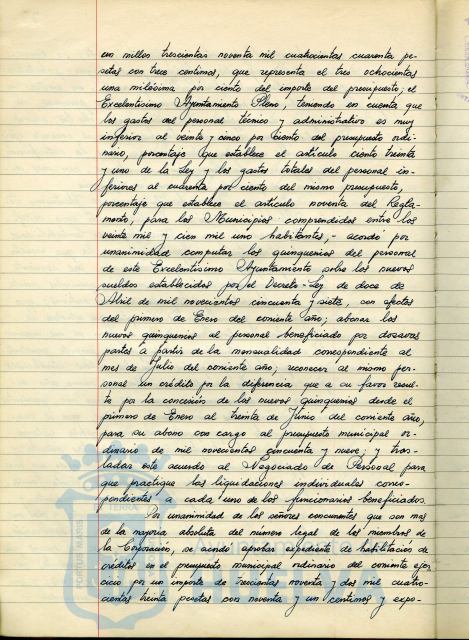 un millon trescientas noventa mil cuatrocientas cuarenta pe-
setas con trece centimos, que representa el tres ochocientas
una milésima por ciento del importe del presupuesto; el
Excelentísimo Ayuntamiento Pleno, teniendo en cuenta que
los gastos del personal técnico y administrativo es muy
inferior al veinte y cinco por ciento del presupuesto ordi-
nario, porcentaje que establece el artículo ciento treinta
y uno de la Ley y los gastos totales del personal in-
feriores al cuarenta por ciento del mismo presupuesto,
porcentaje que establece el artículo noventa del Regla-
mento, para los Municipios comprendidos entre los
veinte mil y cien mil uno habitantes, - acordó por
unanimidad computar los quinquenios del personal
de este Excelentísimo Ayuntamiento sobre los nuevos
sueldos establecidos por el Decreto-Ley de doce de
Abril de mil novecientos cincuenta y siete, con efectos
del primero de Enero del corriente año; abonar los
nuevos quinquenios al personal beneficiado por dozavas
partes a partir de la mensualidad correspondiente al
mes de Julio del corriente año; reconocer al mismo per-
sonal un crédito por la diferencia que a su favor resul-
te por la concesión de los nuevos quinquenios desde el
primero de Enero al treinta de Junio del corriente año,
para su abono con cargo al presupuesto municipal or-
dinario de mil novecientos cincuenta y nueve; y tras-
ladar este acuerdo al Negociado de Personal para
que practique las liquidaciones individuales corres-
pondientes a cada uno de los funcionarios beneficiados.
Por unanimidad de los señores concurrentes que son mas
de la mayoria absoluta del número legal de los miembros de
la Corporación, se acordó aprobar expediente de habilitación de
créditos en el presupuesto municipal ordinario del corriente ejer-
cicio por un importe de trescientas noventa y dos mil cuatro-
cientas treinta pesetas con noventa y un centimos y expo-
PORTUS MAGNUS
TERRA